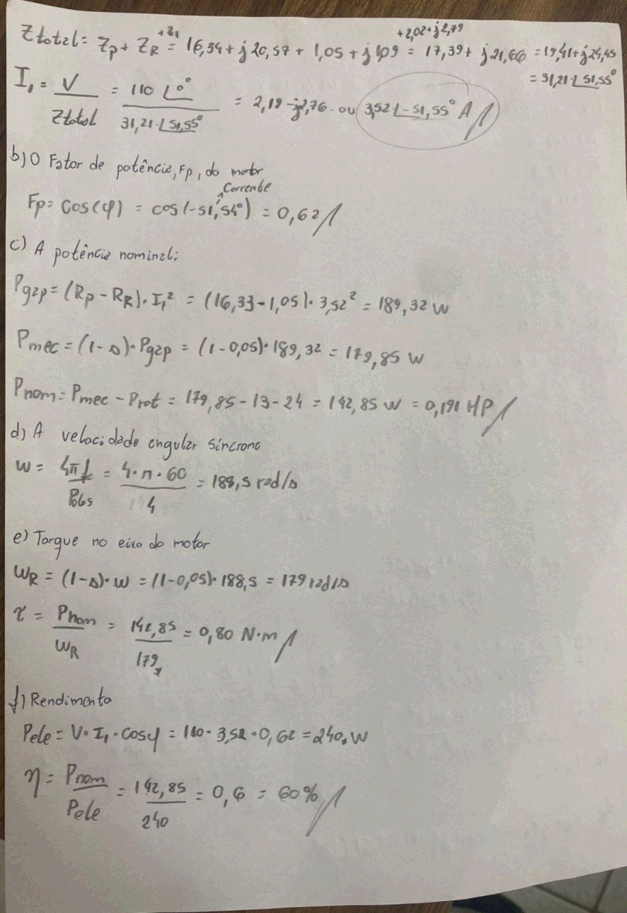 +Z₁ +2,02+j2,79
Ztotal = Zp + ZR = 16,34+j20,57 + 1,05 + j1,09 = 17,39 + j21,66 = 19,41+j24,45
= 31,21∠51,55°
I₁ = V/Ztotal = 110∠0°/31,21∠51,55° = 2,19-j2,76 ou 3,52∠-51,55° A
b) O Fator de potência, Fp, do motor
Corrente
Fp = cos(φ) = cos(-51,54°) = 0,62
c) A potência nominal:
Pgap = (Rp - RR)·I₁² = (16,33-1,05)·3,52² = 189,32 W
Pmec = (1-s)·Pgap = (1-0,05)·189,32 = 179,85 W
Pnom = Pmec - Prot = 179,85-13-24 = 142,85 W = 0,191 HP
d) A velocidade angular síncrona
w = 4πf/Polos = 4·π·60/4 = 188,5 rad/s
e) Torque no eixo do motor
WR = (1-s)·w = (1-0,05)·188,5 = 179 rad/s
τ = Pnom/WR = 142,85/179 = 0,80 N·m
f) Rendimento
Pele = V·I₁·cosφ = 110·3,52·0,62 = 240 W
η = Pnom/Pele = 142,85/240 = 0,6 = 60%